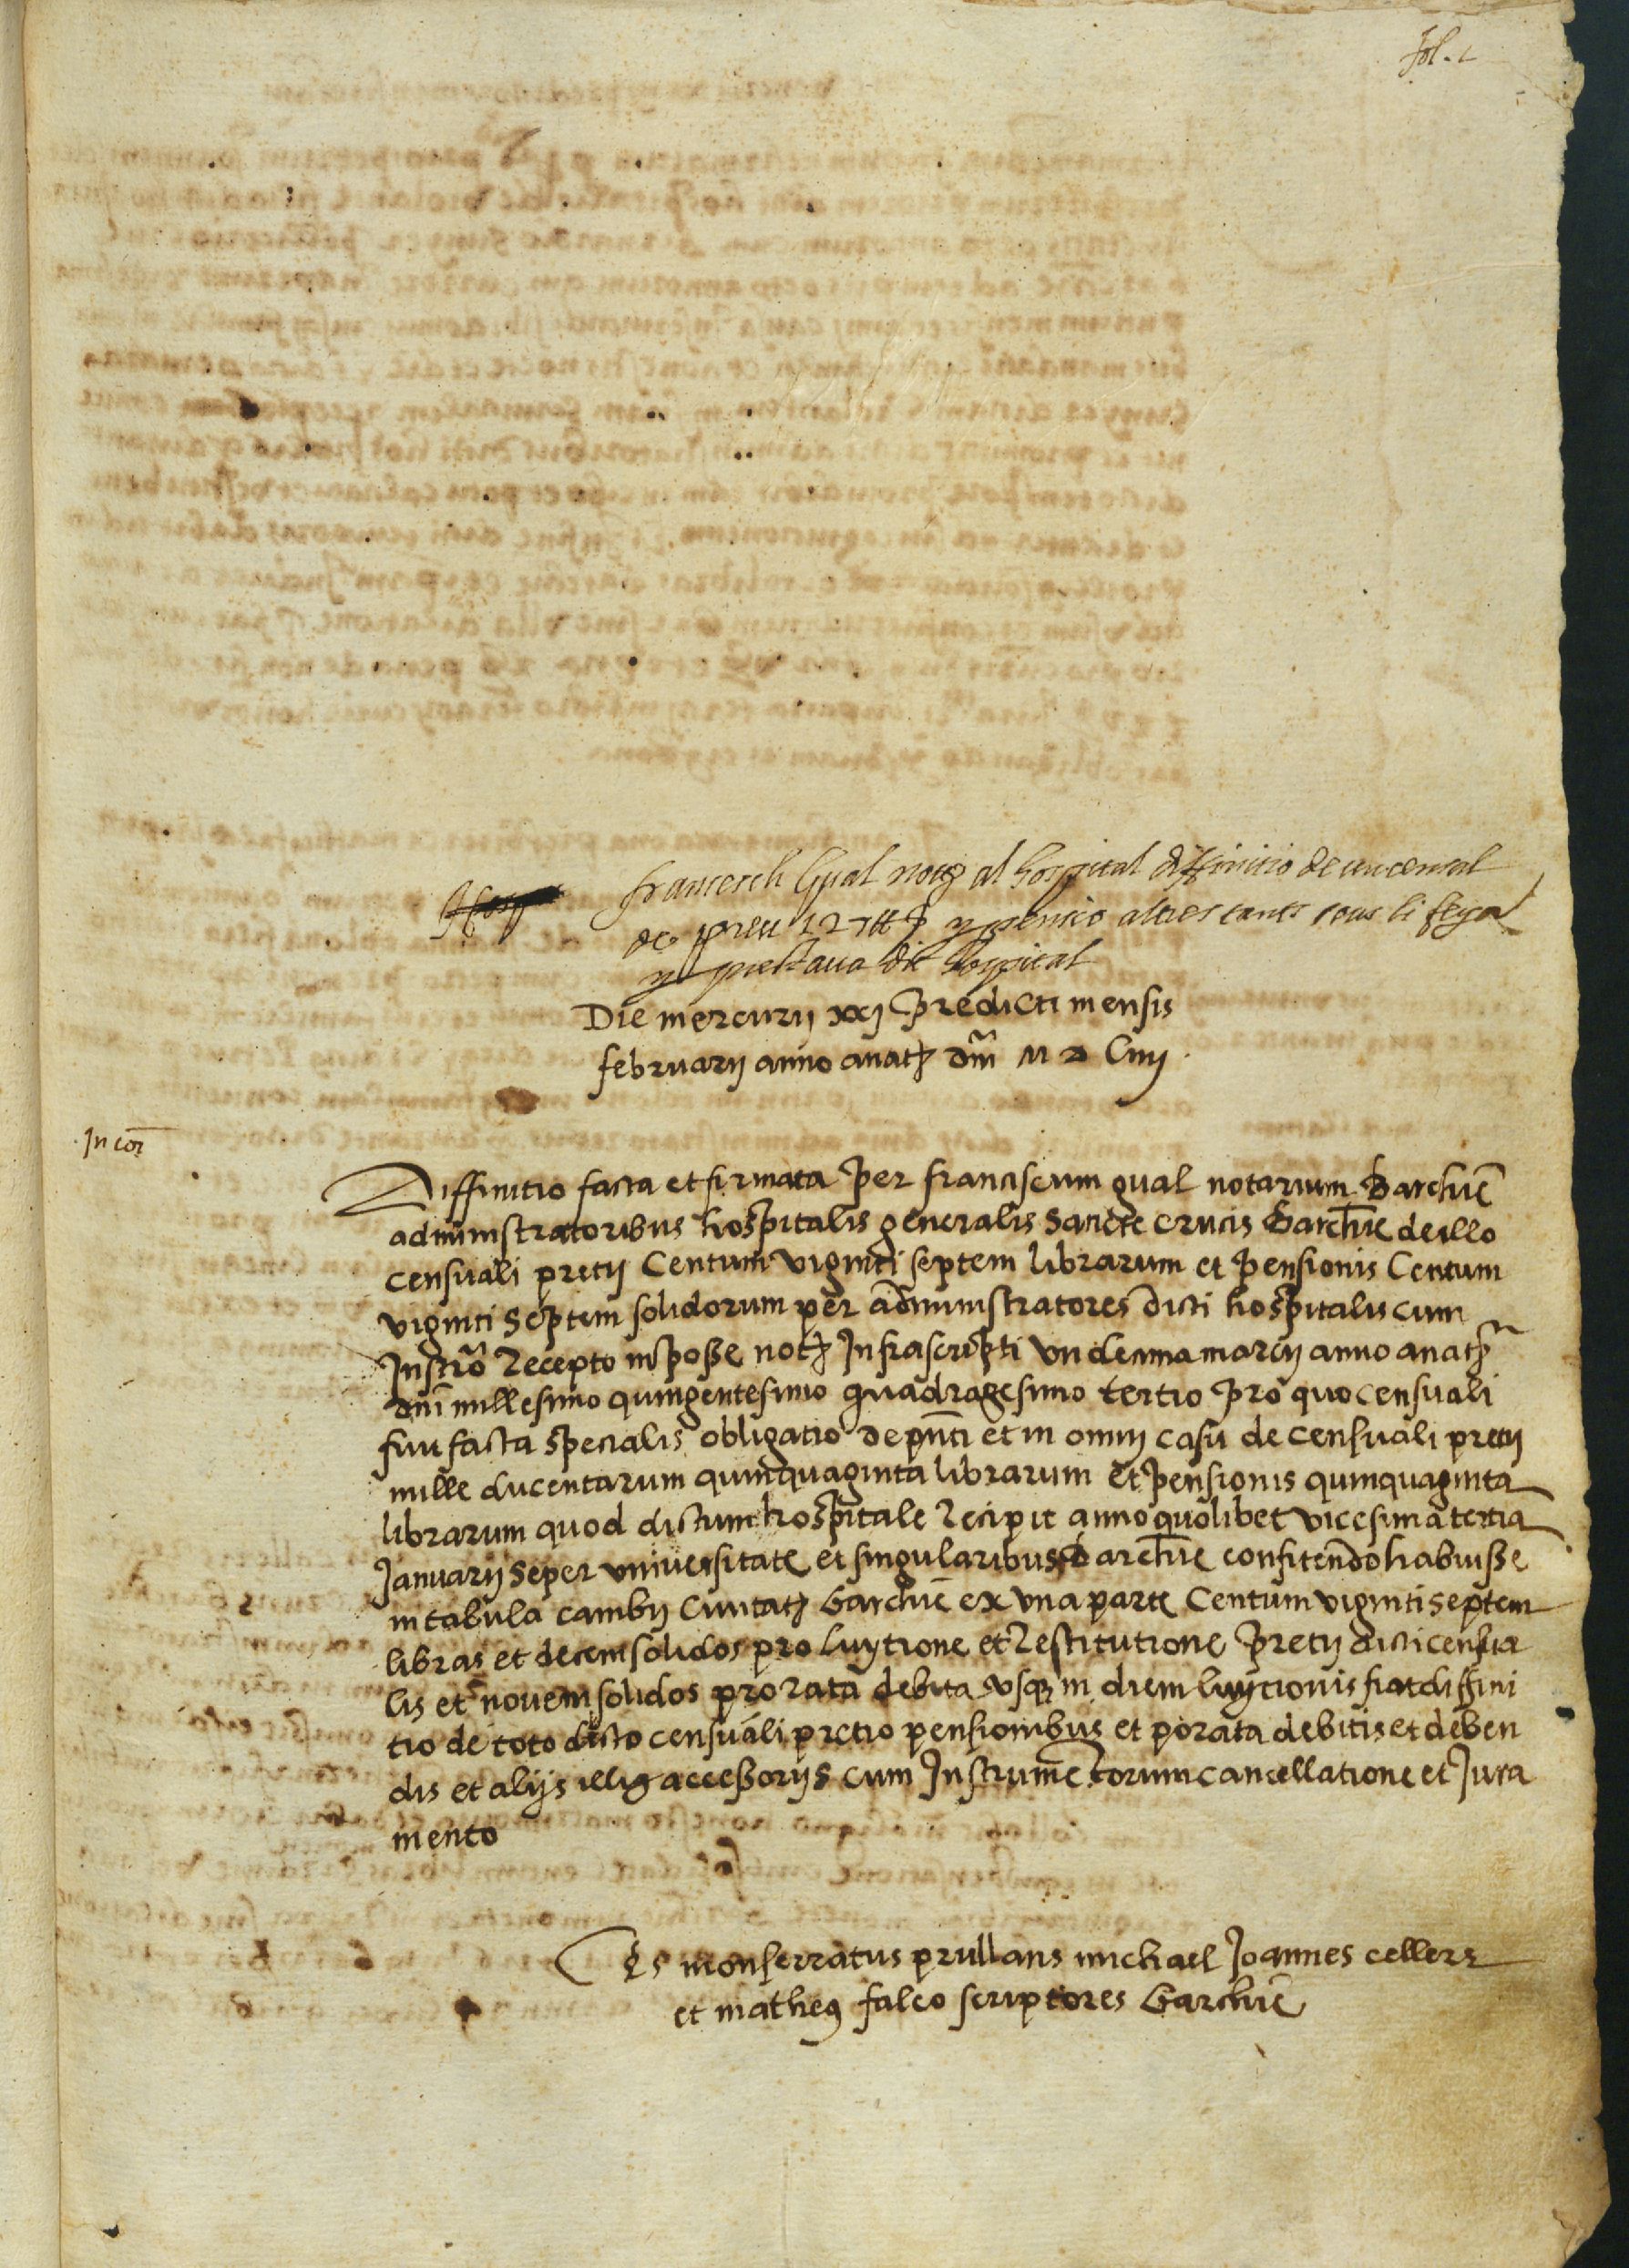 fol. 1
francesch Gual notari al hospital diffinitio de un censal
de preu 127 ₶ y pensio altres tants sous li feya
y prestava dit hospital
Die mercurij xxj predicti mensis
februarij anno anatz dnī M D Liiij.
In coī
Diffinitio facta et firmata per franciscum gual notarium Barchnē
administratoribus hospitalis generalis Sancte crucis Barchnē de illo
censuali pretij Centum viginti septem librarum et pensionis Centum
viginti septem solidorum per administratores dicti hospitalis cum
Instrō recepto in posse notz Infrascripti undecima marcij anno anatz
dnī millesimo quingentesimo quadragesimo tertio pro quo censuali
fuit facta specialis obligatio de pnti et in omnj casu de censuali pretij
mille ducentarum quinquaginta librarum et pensionis quinquaginta
librarum quod dictum hospitale recipit anno quolibet vicesima tertia
Januarij Seper universitate et singularibus Barchnē confitendo habuisse
in tabula cambij Civitatz Barchnē ex una parte Centum viginti septem
libras et decem solidos pro luytione et restitutione pretij dicti censua
lis et novem solidos pro rata debita usqz in diem luytionis fiat diffini
tio de toto dicto censuali pretio pensionibus et porata debitis et deben
dis et alijs illis accessorijs cum Instrumētorum cancellatione et Jura
mento
Ts monserratus prullans michael Joannes cellers
et matheus falco scriptores Barchnē